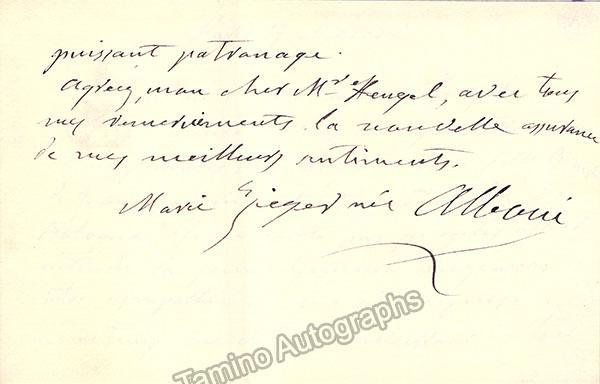 puissant patronage.
Agréez, mon cher Mr Heugel, avec tous
mes remerciements la nouvelle assurance
de mes meilleurs sentiments.
Marie Zieger née Alboni
Tamino Autographs